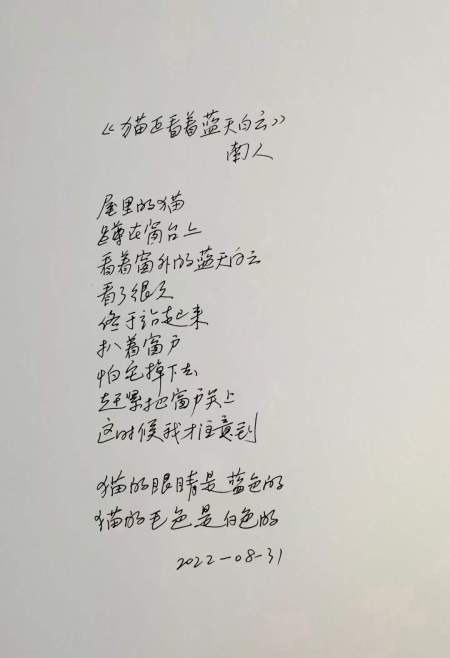 《猫在看着蓝天白云》
南人
屋里的猫
蹲在窗台上
看着窗外的蓝天白云
看了很久
终于站起来
扒着窗户
怕它掉下去
赶紧把窗户关上
这时候我才注意到
猫的眼睛是蓝色的
猫的毛色是白色的
2022-08-31